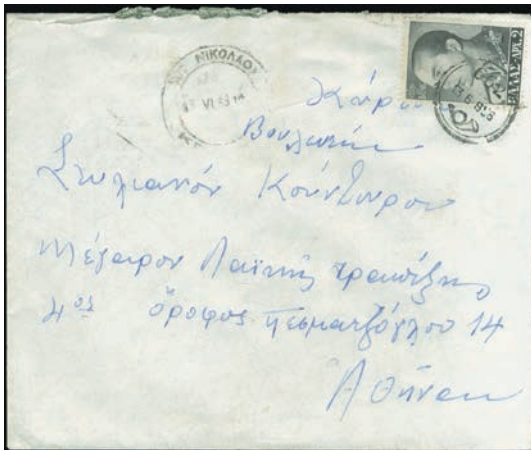 ΝΙΚΟΛΑΟΥ
VI
ΕΛΛΑΣ-ΔΡΧ.2
Κύριον
Βουλευτήν
Στυλιανόν Κούνδουρον
Μέγαρον Λαϊκής τραπέζης
4ος όροφος Πεσματζόγλου 14
Αθήνας